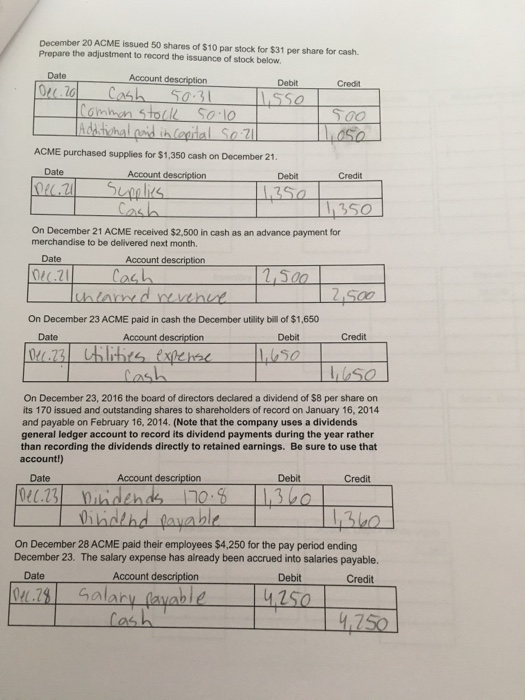 December 20 ACME issued 50 shares of $10 par stock for $31 per share for cash.
Prepare the adjustment to record the issuance of stock below.
Date Account description Debit Credit
Dec. 20 Cash 50·31 1,550
Common stock 50·10 500
Additional paid in capital 50·21 1,050
ACME purchased supplies for $1,350 cash on December 21.
Date Account description Debit Credit
Dec. 21 Supplies 1,350
Cash 1,350
On December 21 ACME received $2,500 in cash as an advance payment for
merchandise to be delivered next month.
Date Account description
Dec. 21 Cash 2,500
Unearned revenue 2,500
On December 23 ACME paid in cash the December utility bill of $1,650
Date Account description Debit Credit
Dec. 23 Utilities expense 1,650
Cash 1,650
On December 23, 2016 the board of directors declared a dividend of $8 per share on
its 170 issued and outstanding shares to shareholders of record on January 16, 2014
and payable on February 16, 2014. (Note that the company uses a dividends
general ledger account to record its dividend payments during the year rather
than recording the dividends directly to retained earnings. Be sure to use that
account!)
Date Account description Debit Credit
Dec. 23 Dividends 170·8 1,360
Dividend payable 1,360
On December 28 ACME paid their employees $4,250 for the pay period ending
December 23. The salary expense has already been accrued into salaries payable.
Date Account description Debit Credit
Dec. 28 Salary payable 4,250
Cash 4,250